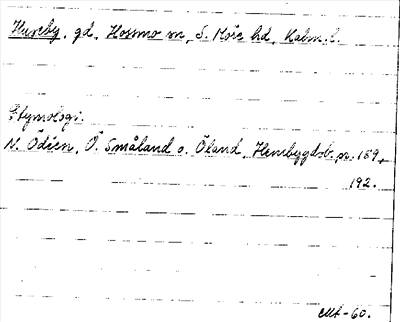 Huseby, gd, Hossmo sn, S. Möre hd, Kalm. l.
Etymologi.
N. Ödéen, Ö. Småland o. Öland, Hembygdsb. p. 189,
192.
CMt-60.